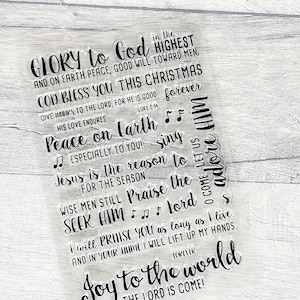 GLORY to God in the HIGHEST
AND ON EARTH PEACE, GOOD WILL TOWARD MEN.
GOD BLESS YOU THIS CHRISTMAS
GIVE THANKS TO THE LORD, FOR HE IS GOOD
HIS LOVE ENDURES forever
LUKE 2:14
Peace on Earth
ESPECIALLY TO YOU!
sing
Jesus is the reason to
FOR THE SEASON
O COME LET US
adore HIM
WISE MEN STILL
SEEK HIM
Praise the
Lord
I will PRAISE YOU as long as I live
AND IN YOUR NAME I WILL LIFT UP MY HANDS.
Joy to the world
THE LORD IS COME!